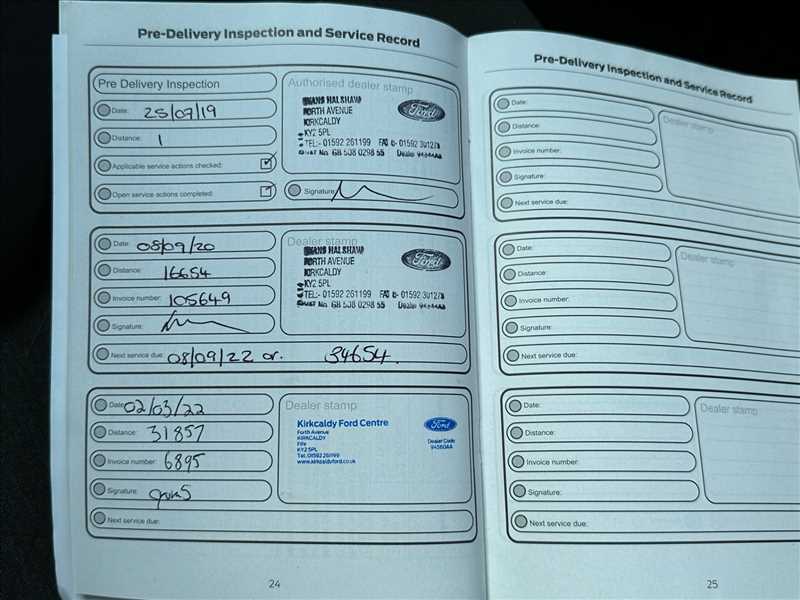 Pre-Delivery Inspection and Service Record
Pre Delivery Inspection
Date: 25/09/19
Distance: 1
Applicable service actions checked:
Open service actions completed:
Authorised dealer stamp
HALSHAW
FORTH AVENUE
KIRKCALDY
KY2 5PL
TEL:- 01592 261199 FAX 01592 301273
No. GB 508 0298 55 Dealer
Ford
Signature:
Date: 08/09/20
Distance: 16654
Invoice number: 105649
Signature:
Next service due: 08/09/22 or. 34654.
Dealer stamp
HALSHAW
FORTH AVENUE
KIRKCALDY
KY2 5PL
TEL:- 01592 261199 01592
No. GB 508 0298 55 Dealer
Ford
Date: 02/03/22
Distance: 31857
Invoice number: 6895
Signature:
Next service due:
Dealer stamp
Kirkcaldy Ford Centre
Forth Avenue
KIRKCALDY
Fife
KY2 5PL
Tel. 01592 261199
www.kirkcaldyford.co.uk
Ford
Dealer Code
94560AA
24
Pre-Delivery Inspection and Service Record
Date:
Distance:
Invoice number:
Signature:
Next service due:
Dealer stamp
Date:
Distance:
Invoice number:
Signature:
Next service due:
Dealer stamp
Date:
Distance:
Invoice number:
Signature:
Next service due:
Dealer stamp
25